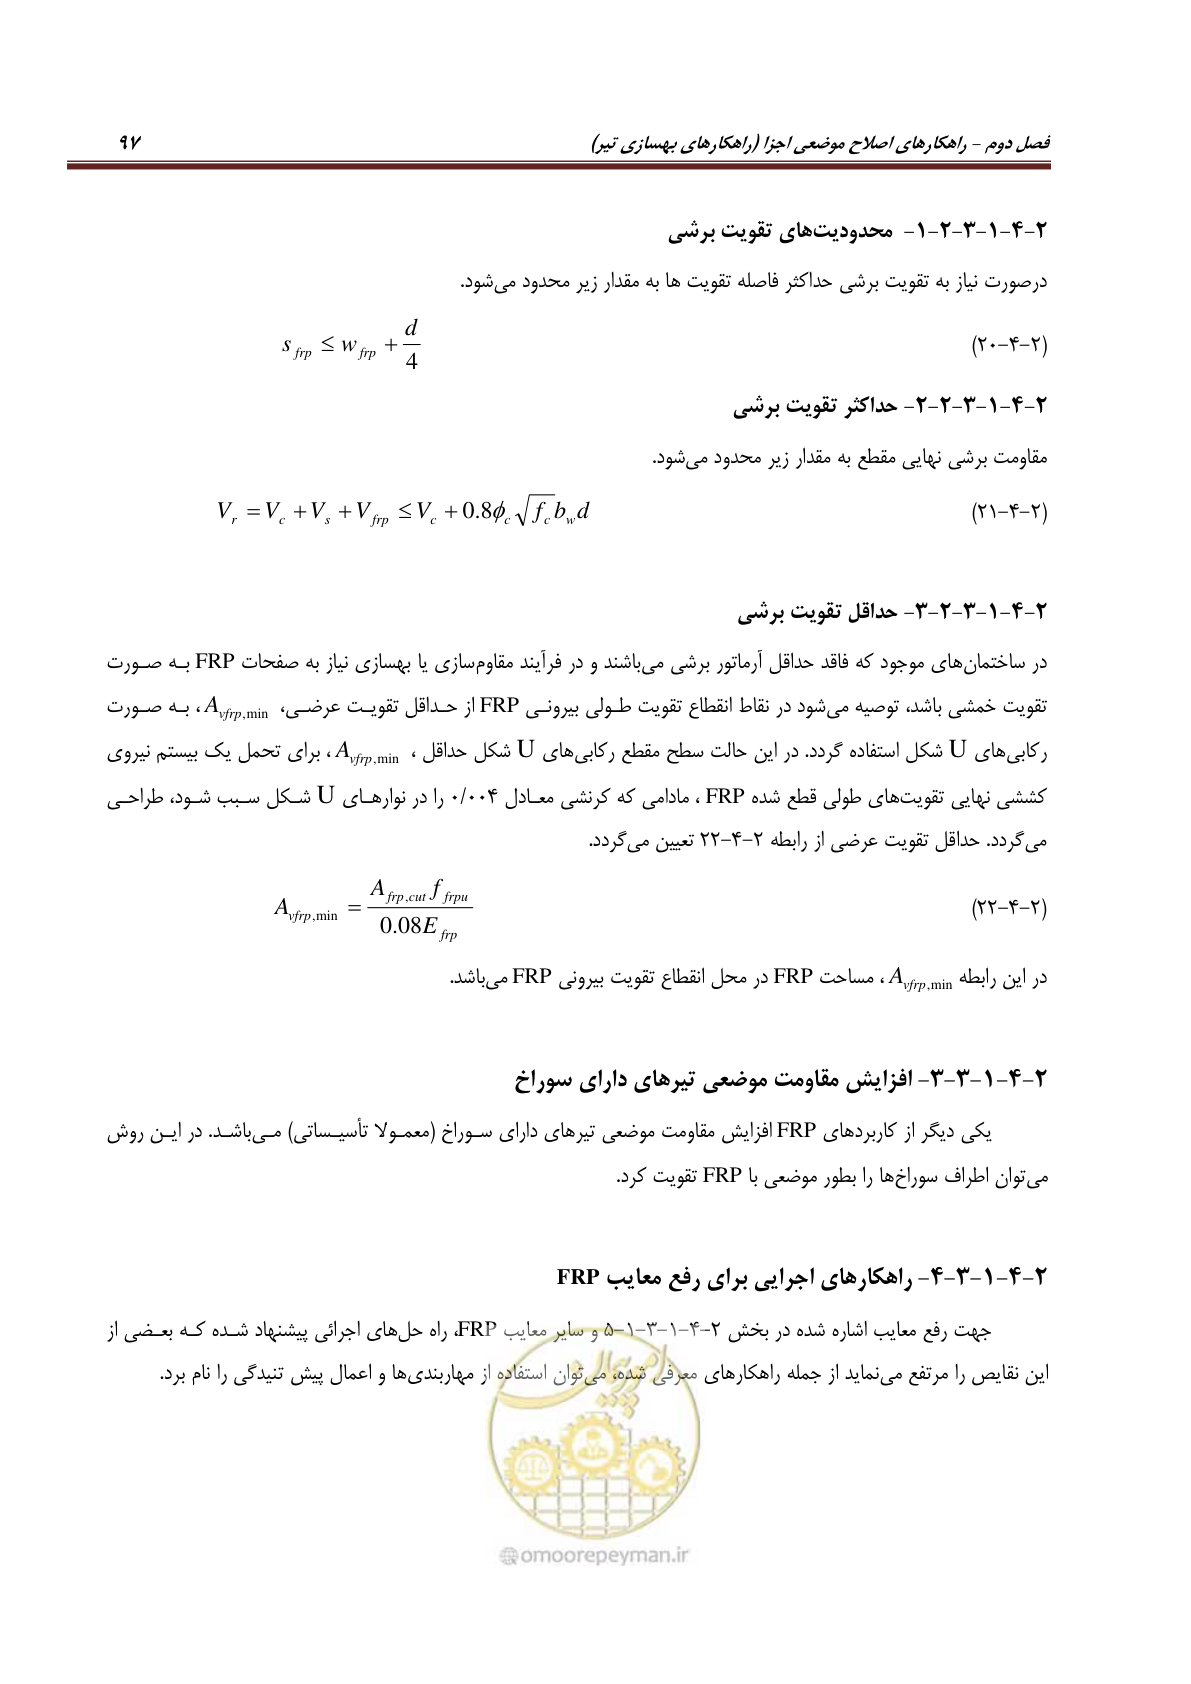 فصل دوم – راهکارهای اصلاح موضعی اجزا (راهکارهای بهسازی تیر) ۹۷
۲-۴-۱-۳-۲-۱- محدودیت‌های تقویت برشی
درصورت نیاز به تقویت برشی حداکثر فاصله تقویت ها به مقدار زیر محدود می‌شود.
(۲-۴-۲۰) s_frp ≤ w_frp + d/4
۲-۴-۱-۳-۲-۲- حداکثر تقویت برشی
مقاومت برشی نهایی مقطع به مقدار زیر محدود می‌شود.
(۲-۴-۲۱) V_r = V_c + V_s + V_frp ≤ V_c + 0.8ϕ_c √f_c b_w d
۲-۴-۱-۳-۲-۳- حداقل تقویت برشی
در ساختمان‌های موجود که فاقد حداقل آرماتور برشی می‌باشند و در فرآیند مقاوم‌سازی یا بهسازی نیاز به صفحات FRP به صورت
تقویت خمشی باشد، توصیه می‌شود در نقاط انقطاع تقویت طولی بیرونی FRP از حداقل تقویت عرضی، A_vfrp,min ، به صورت
رکابی‌های U شکل استفاده گردد. در این حالت سطح مقطع رکابی‌های U شکل حداقل ، A_vfrp,min ، برای تحمل یک بیستم نیروی
کششی نهایی تقویت‌های طولی قطع شده FRP ، مادامی که کرنشی معادل ۰/۰۰۴ را در نوارهای U شکل سبب شود، طراحی
می‌گردد. حداقل تقویت عرضی از رابطه ۲-۴-۲۲ تعیین می‌گردد.
(۲-۴-۲۲) A_vfrp,min = A_frp,cut f_frpu / 0.08E_frp
در این رابطه A_vfrp,min ، مساحت FRP در محل انقطاع تقویت بیرونی FRP می‌باشد.
۲-۴-۱-۳-۳- افزایش مقاومت موضعی تیرهای دارای سوراخ
یکی دیگر از کاربردهای FRP افزایش مقاومت موضعی تیرهای دارای سوراخ (معمولا تأسیساتی) می‌باشد. در این روش
می‌توان اطراف سوراخ‌ها را بطور موضعی با FRP تقویت کرد.
۲-۴-۱-۳-۴- راهکارهای اجرایی برای رفع معایب FRP
جهت رفع معایب اشاره شده در بخش ۲-۴-۱-۳-۱-۵ و سایر معایب FRP، راه حل‌های اجرائی پیشنهاد شده که بعضی از
این نقایص را مرتفع می‌نماید از جمله راهکارهای معرفی شده، می‌توان استفاده از مهاربندی‌ها و اعمال پیش تنیدگی را نام برد.
امور پیمان
@omoorepeyman.ir